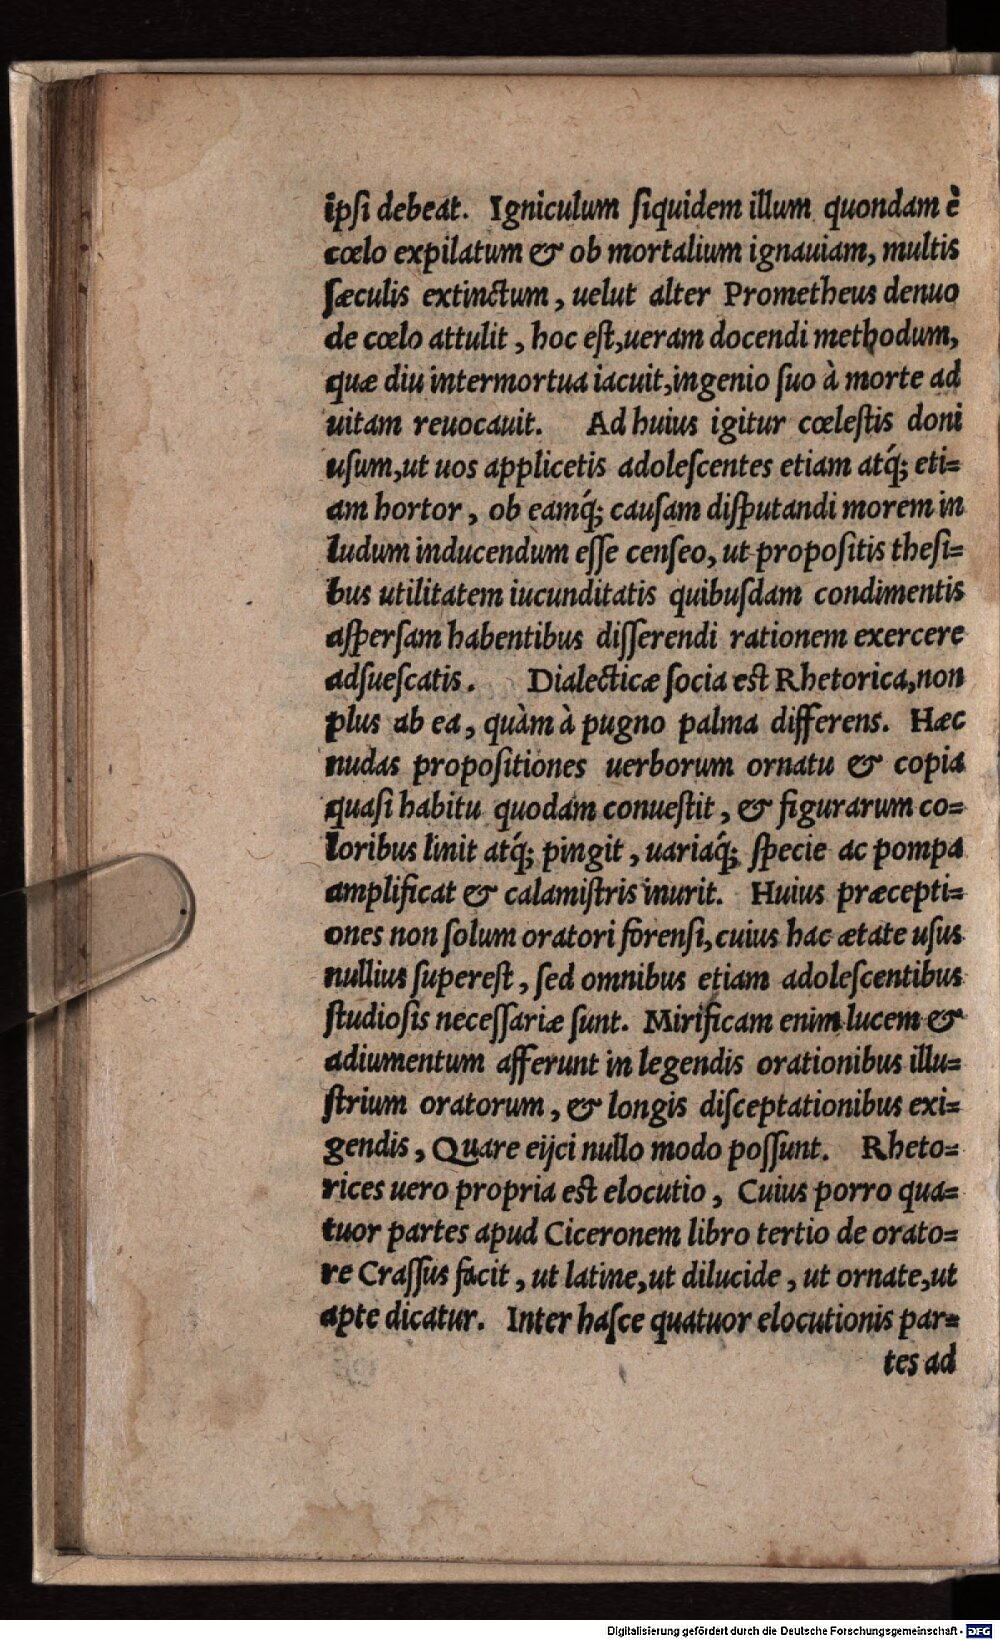 ipſi debeat. Igniculum ſiquidem illum quondam è
cœlo expilatum & ob mortalium ignauiam, multis
ſæculis extinctum, uelut alter Prometheus denuo
de cœlo attulit, hoc eſt,ueram docendi methodum,
quæ diu intermortua iacuit,ingenio ſuo à morte ad
uitam reuocauit. Ad huius igitur cœleſtis doni
uſum,ut uos applicetis adoleſcentes etiam atq́; eti=
am hortor, ob eamq́; cauſam diſputandi morem in
ludum inducendum eſſe cenſeo, ut propoſitis theſi=
bus utilitatem iucunditatis quibuſdam condimentis
aſperſam habentibus diſſerendi rationem exercere
adſueſcatis. Dialecticæ ſocia est Rhetorica,non
plus ab ea, quàm à pugno palma differens. Hæc
nudas propoſitiones uerborum ornatu & copia
quaſi habitu quodam conueſtit, & figurarum co=
loribus linit atq́; pingit, uariaq́; ſpecie ac pompa
amplificat & calamiſtris inurit. Huius præcepti=
ones non ſolum oratori forenſi,cuius hac ætate uſus
nullius ſupereſt, ſed omnibus etiam adoleſcentibus
ſtudioſis neceſſariæ ſunt. Mirificam enim lucem &
adiumentum afferunt in legendis orationibus illu=
ſtrium oratorum, & longis diſceptationibus exi=
gendis, Quare eijci nullo modo poſſunt. Rheto=
rices uero propria est elocutio, Cuius porro qua=
tuor partes apud Ciceronem libro tertio de orato=
re Craſſus facit, ut latine,ut dilucide, ut ornate,ut
apte dicatur. Inter haſce quatuor elocutionis par=
tes ad
Digitalisierung gefördert durch die Deutsche Forschungsgemeinschaft - DFG